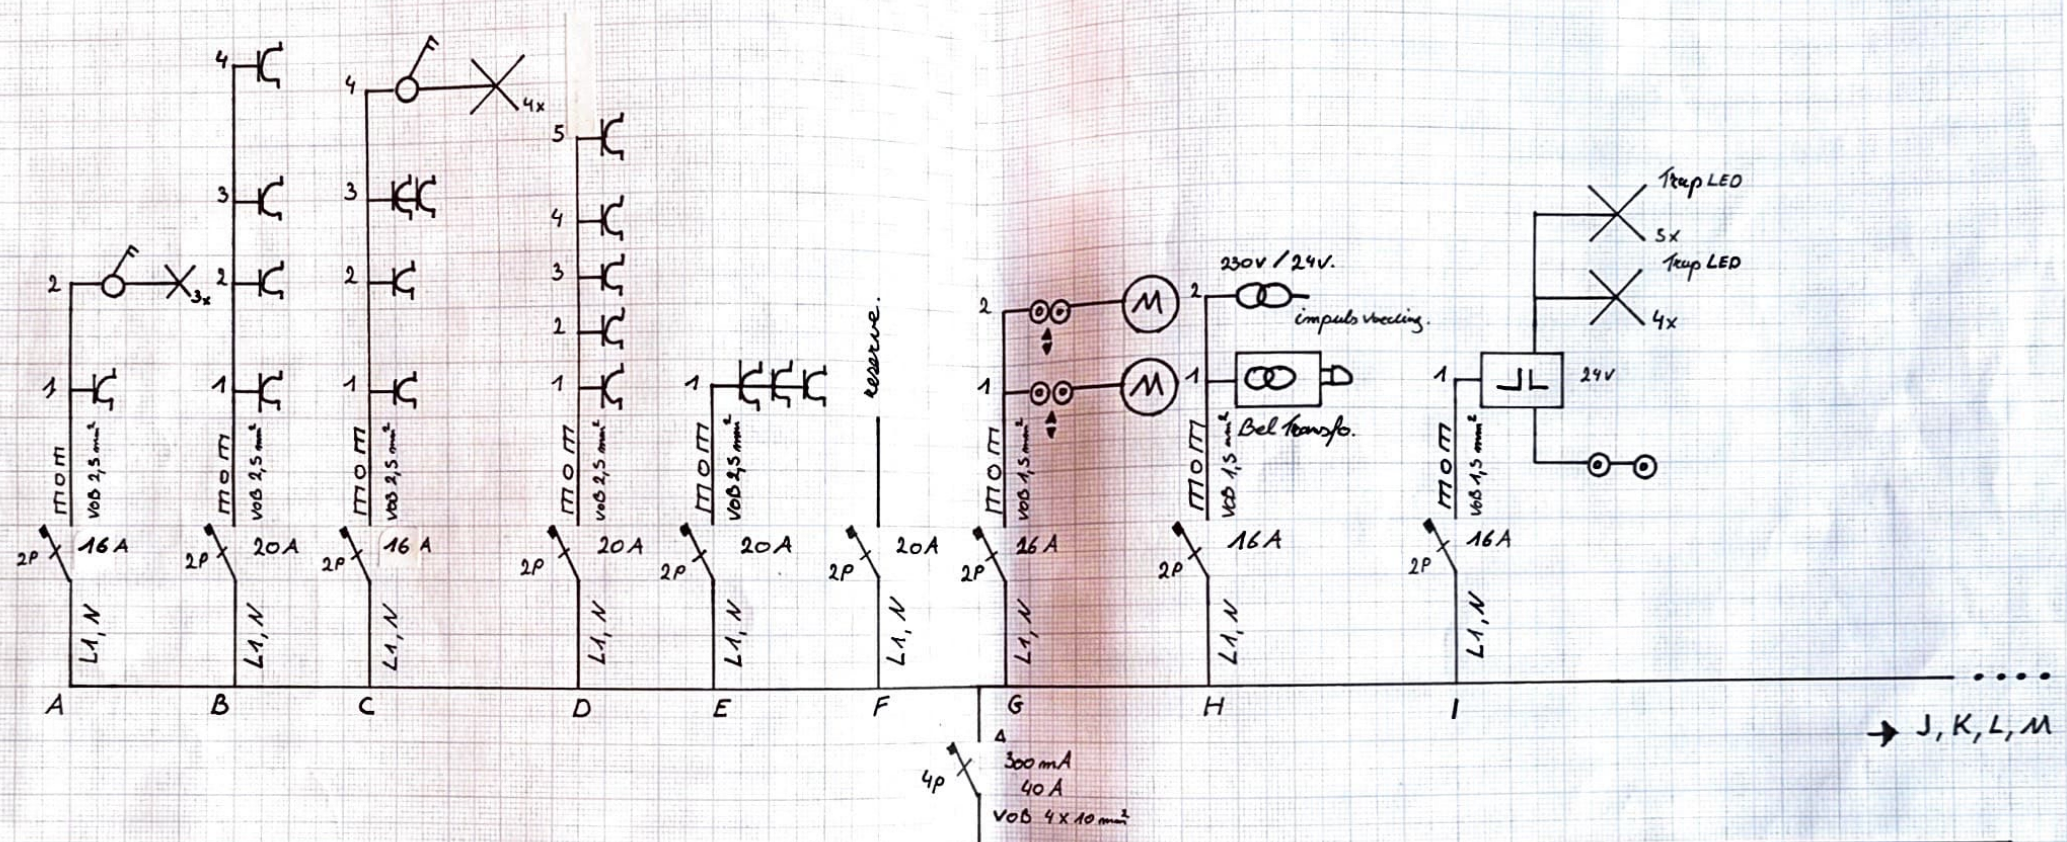 4
4
4x
5
3
3
4
2
3x
2
2
3
2
1
1
1
1
1
reserve.
2
1
230V / 24V.
2
impulsvoeding.
1
Bel Transfo.
Trap LED
5x
Trap LED
4x
1
24V
VOB 2,5 mm²
VOB 2,5 mm²
VOB 2,5 mm²
VOB 2,5 mm²
VOB 2,5 mm²
VOB 1,5 mm²
VOB 1,5 mm²
VOB 1,5 mm²
2P 16A
2P 20A
2P 16A
2P 20A
2P 20A
2P 20A
2P 16A
2P 16A
2P 16A
L1, N
L1, N
L1, N
L1, N
L1, N
L1, N
L1, N
L1, N
L1, N
A B C D E F G H I
→ J, K, L, M
Δ
300 mA
4P 40 A
VOB 4 x 10 mm²
M
M